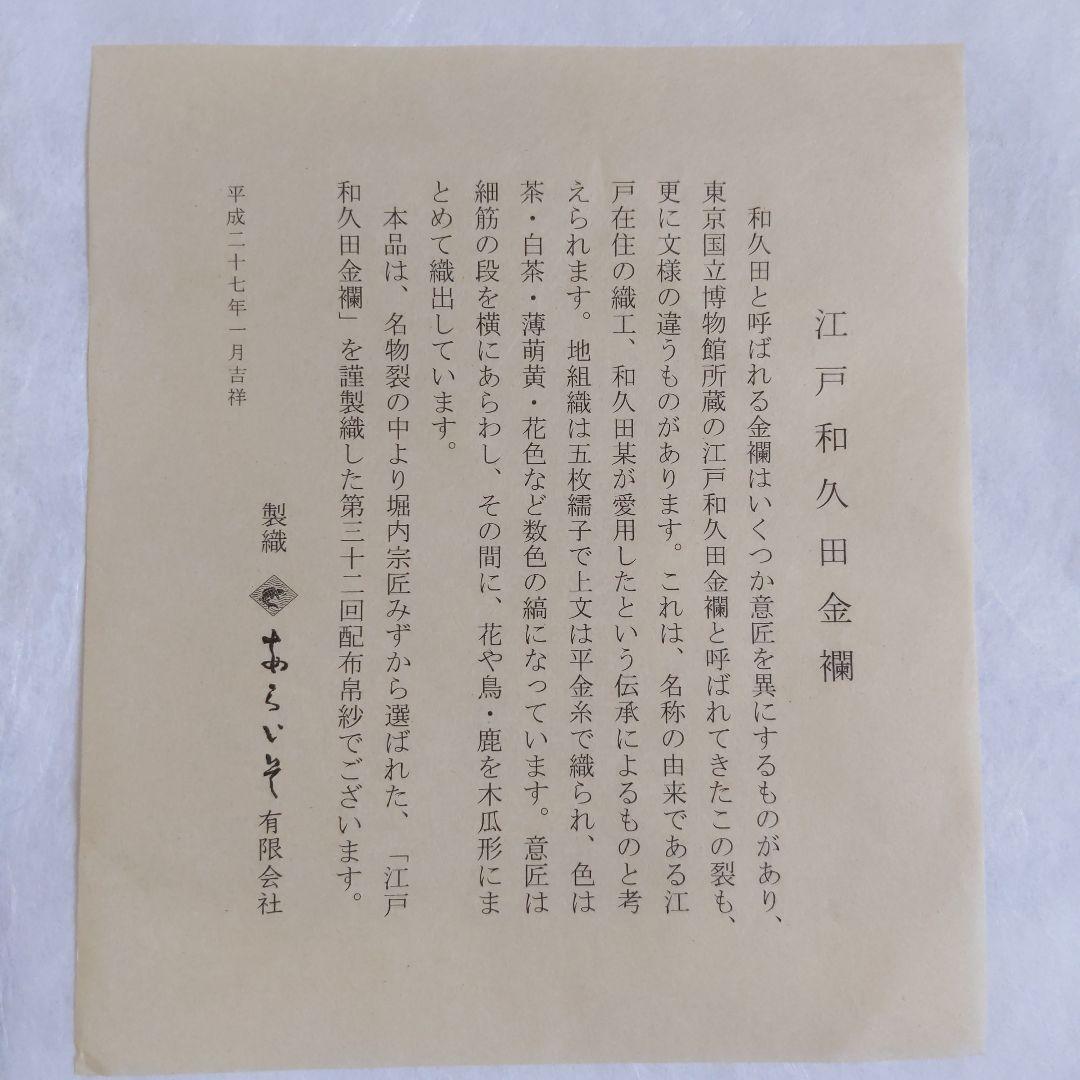 江戸和久田金襴
和久田と呼ばれる金襴はいくつか意匠を異にするものがあり、
東京国立博物館所蔵の江戸和久田金襴と呼ばれてきたこの裂も、
更に文様の違うものがあります。これは、名称の由来である江
戸在住の織工、和久田某が愛用したという伝承によるものと考
えられます。地組織は五枚繻子で上文は平金糸で織られ、色は
茶・白茶・薄萌黄・花色など数色の縞になっています。意匠は
細筋の段を横にあらわし、その間に、花や鳥・鹿を木瓜形にま
とめて織出しています。
本品は、名物裂の中より堀内宗匠みずから選ばれた、「江戸
和久田金襴」を謹製織した第三十二回配布帛紗でございます。
平成二十七年一月吉祥
製織 あらいそ 有限会社